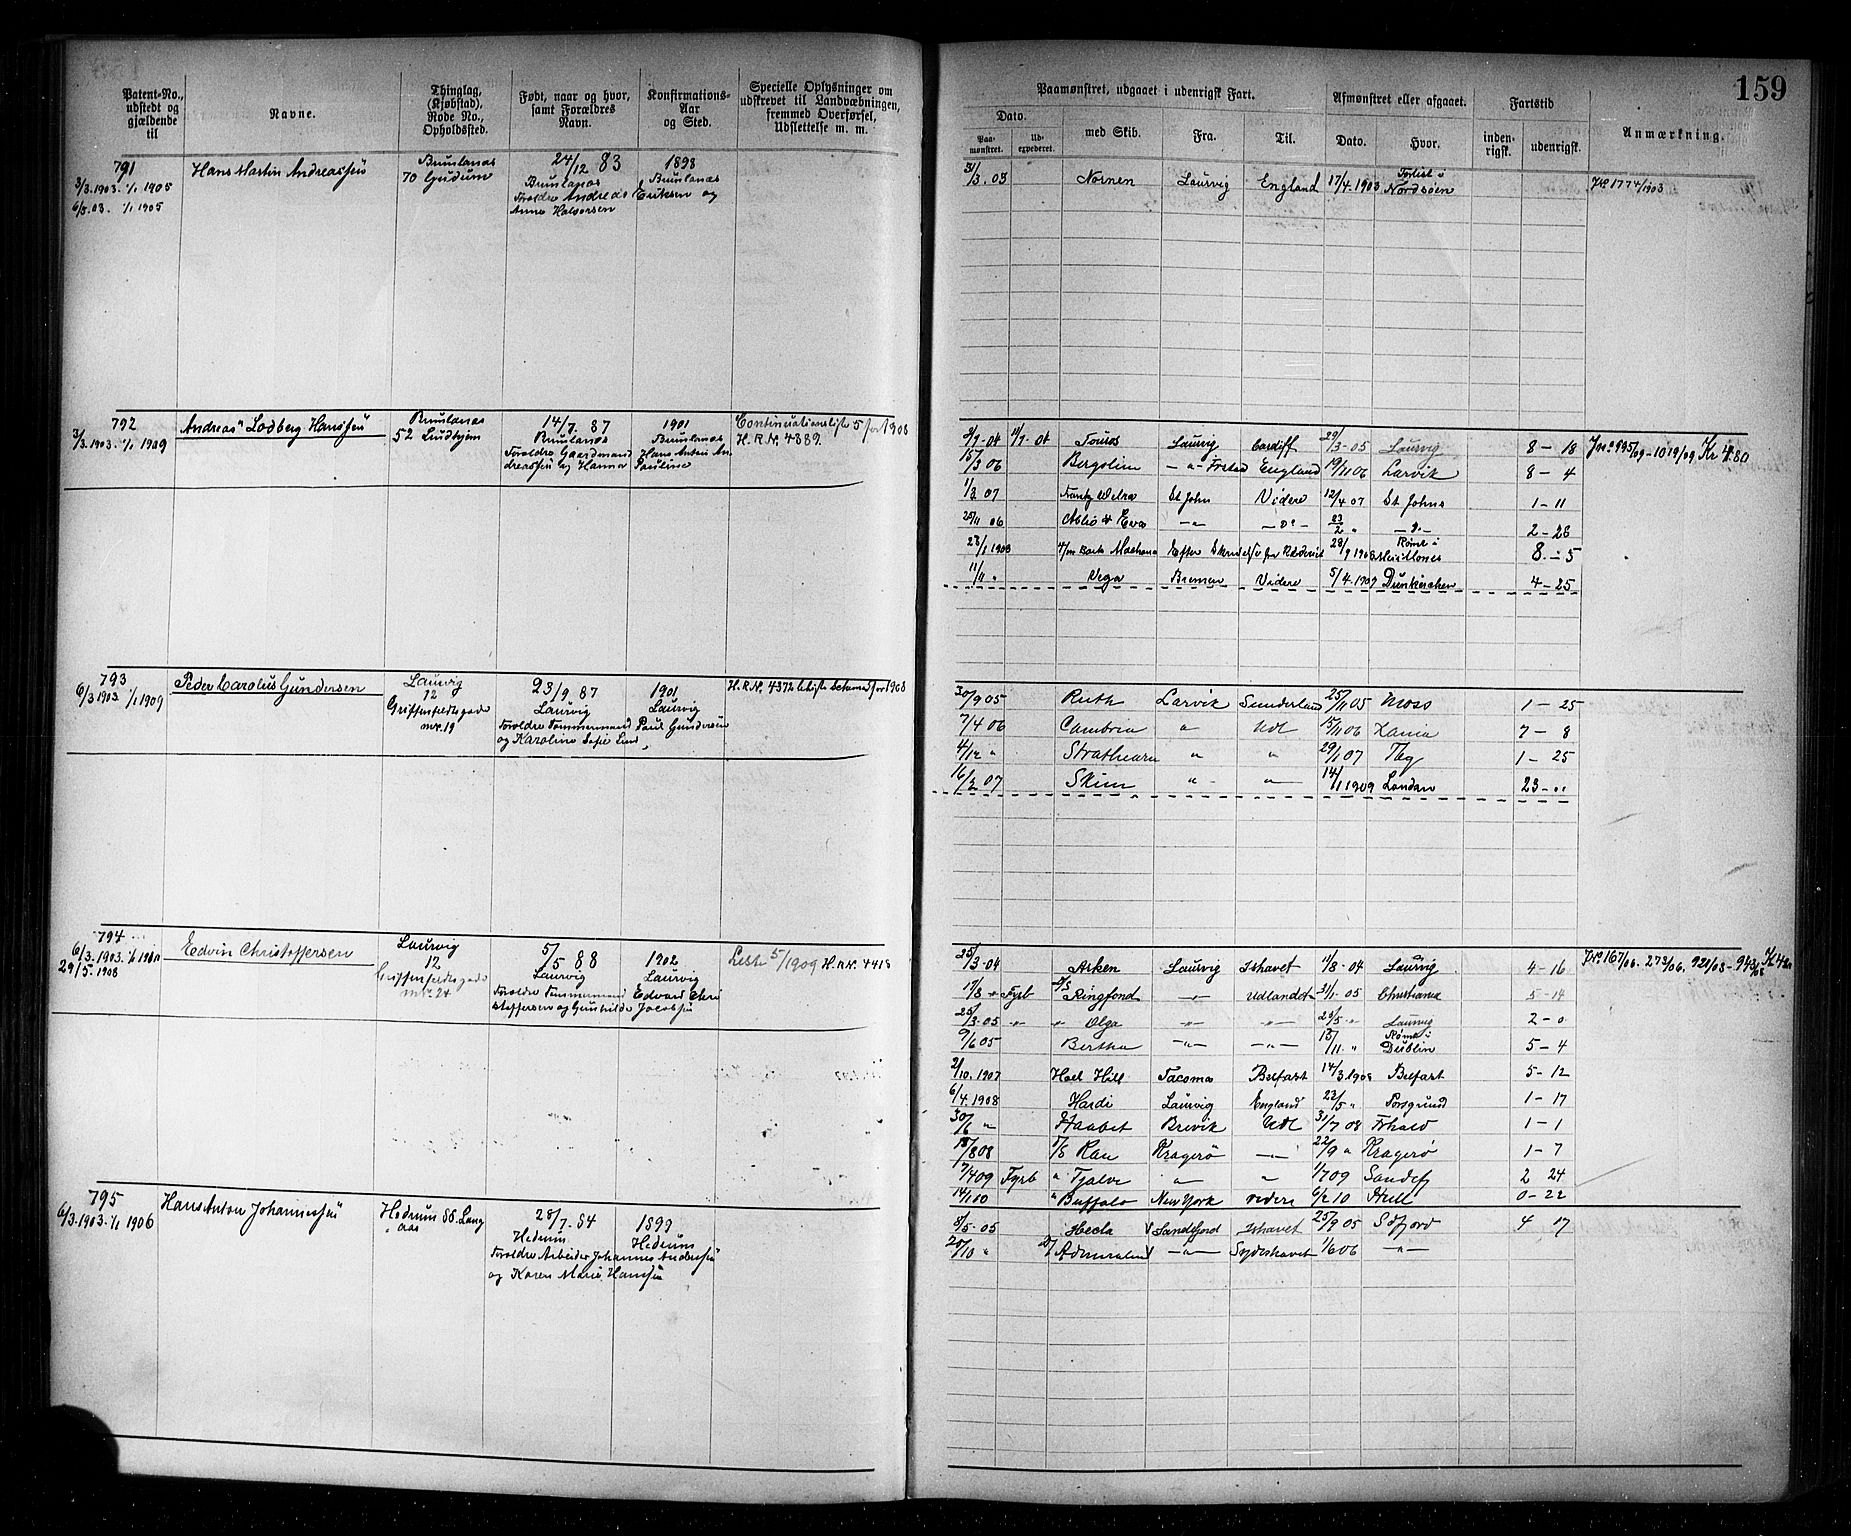 159
Patent-No., udstedt og gjældende til
Navne.
Thinglag, (Kjøbstad), Rode No., Opholdssted.
Født, naar og hvor, samt Forældres Navn.
Konfirmations-Aar og Sted.
Specielle Oplysninger om udskrevet til Landvæbningen, fremmed Overførsel, Udslettelse m. m.
Paamønstret, udgaaet i udenrigsk Fart.
Dato.
Paa-mønstret.
Ud-expederet.
med Skib.
Fra.
Til.
Afmønstret eller afgaaet.
Dato.
Hvor.
Fartstid
inden-rigsk.
udenrigsk.
Anmærkning.
791
3/3.1903. 1/1 1905
6/3.03. 1/1 1905
Hans Martin Andreassen
Brunlanæs
70 Gudum
24/12 83
Brunlanæs
Forældre Andreas Eriksen og
Anne Halvorsen
1898
Brunlanæs
31/3.03 Nornen Laurvig England 17/4.1903 Forlist i Nordsøen
JN° 1774/1903
792
3/3.1903. 1/1 1909
Andreas Lodberg Hanssen
Brunlanæs
52
14/7. 87
Brunlanæs
Forældre Gaardmand Hans Anton An-
dreassen og Hanna Pauline
1901
Brunlanæs
H.R.N. 4389.
9/9-04 11/9-04 Laurvig Cardiff 29/3-05 Laurvig 8-18
15/3 06 Bergslien England 19/11 06 Larvik 8-4
1/3 07 St John Videre 12/4 07 St Johns 1-11
23/2 2-28
23/1 1908 28/9 1908 8-5
11/11 " Vega Bremen Videre 5/4.1909 Dunkerchen 4-25
793
6/3 1903. 1/1 1909
Peder Carolus Gundersen
Laurvig
12
Griffenfeldtsgade
nr. 19
23/9. 87
Laurvig
Forældre Tømmermand Paul Gundersen
og Karoline Sofie Lund
1901
Laurvig
H.R.N°. 4372
30/9 05 Ruth Larvik Sunderland 25/11 05 Moss 1-25
7/4 06 Cambria " Udl 15/11 06 7-8
4/12 " Strathearn " " 29/1 07 1-25
16/2 07 " " 14/1 1909 London 23-"
794
6/3.1903.
29/5.1908
Edvin Christoffersen
Laurvig
12
Griffenfeldtsgade
nr. 24
5/5 88
Laurvig
Forældre Tømmermand Edvard Chri
stoffersen og Gunhilde Jacobsen
1902
Laurvig
Liste 5/1909 H.R.N. 4418
25/3-04 Arken Laurvig Ishavet 11/8-04 Laurvig 4-16
17/8 " Fyrb D/S Ringfond " Udlandet 31/1-05 Christiania 5-14
25/3-05 " " Olga " " 23/5-" Laurvig 2-0
9/6 05 Bertha -"- -"- 13/11. " Rømt i Dublin 5-4
2/10.1907 Hill Tacoma Belfast 14/3 1908 Belfast 5-12
6/4.1908 Hardi Laurvig England 23/5 " Porsgrund 1-17
30/6 " Haabet Brevik Udl 31/7 08 Frhald 1-1
15/8 08 D/S Ran Kragerø 22/9 " Kragerø 1-7
17/4 09 Fyrb " Fjalve " " 1/7 09 Sandef 2 24
14/1 10 " Buffalo New York videre 6/2 10 Hull 0-22
795
6/3.1903. 1/1 1906
Hans Anton Johannessen
Hedrum
28/7. 84
Hedrum
Forældre Arbeider Johannes Andersen
og Karen Marie Hanssen
1899
Hedrum
8/5-05 Hecla Sandefjord Ishavet 25/9 05 Sdfjord 4 17
20/10 " Admiralen -"- Sydishavet 1/6 06 -"-